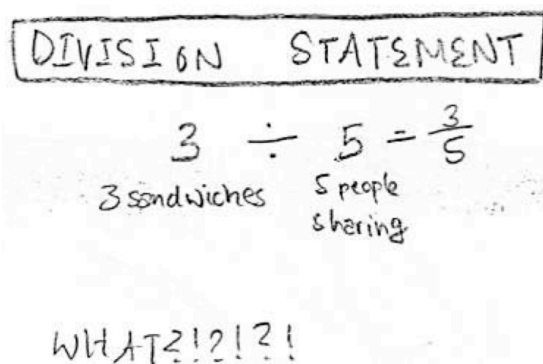 DIVISION STATEMENT
3 ÷ 5 = 3/5
3 sandwiches 5 people
sharing
WHAT?!?!?!